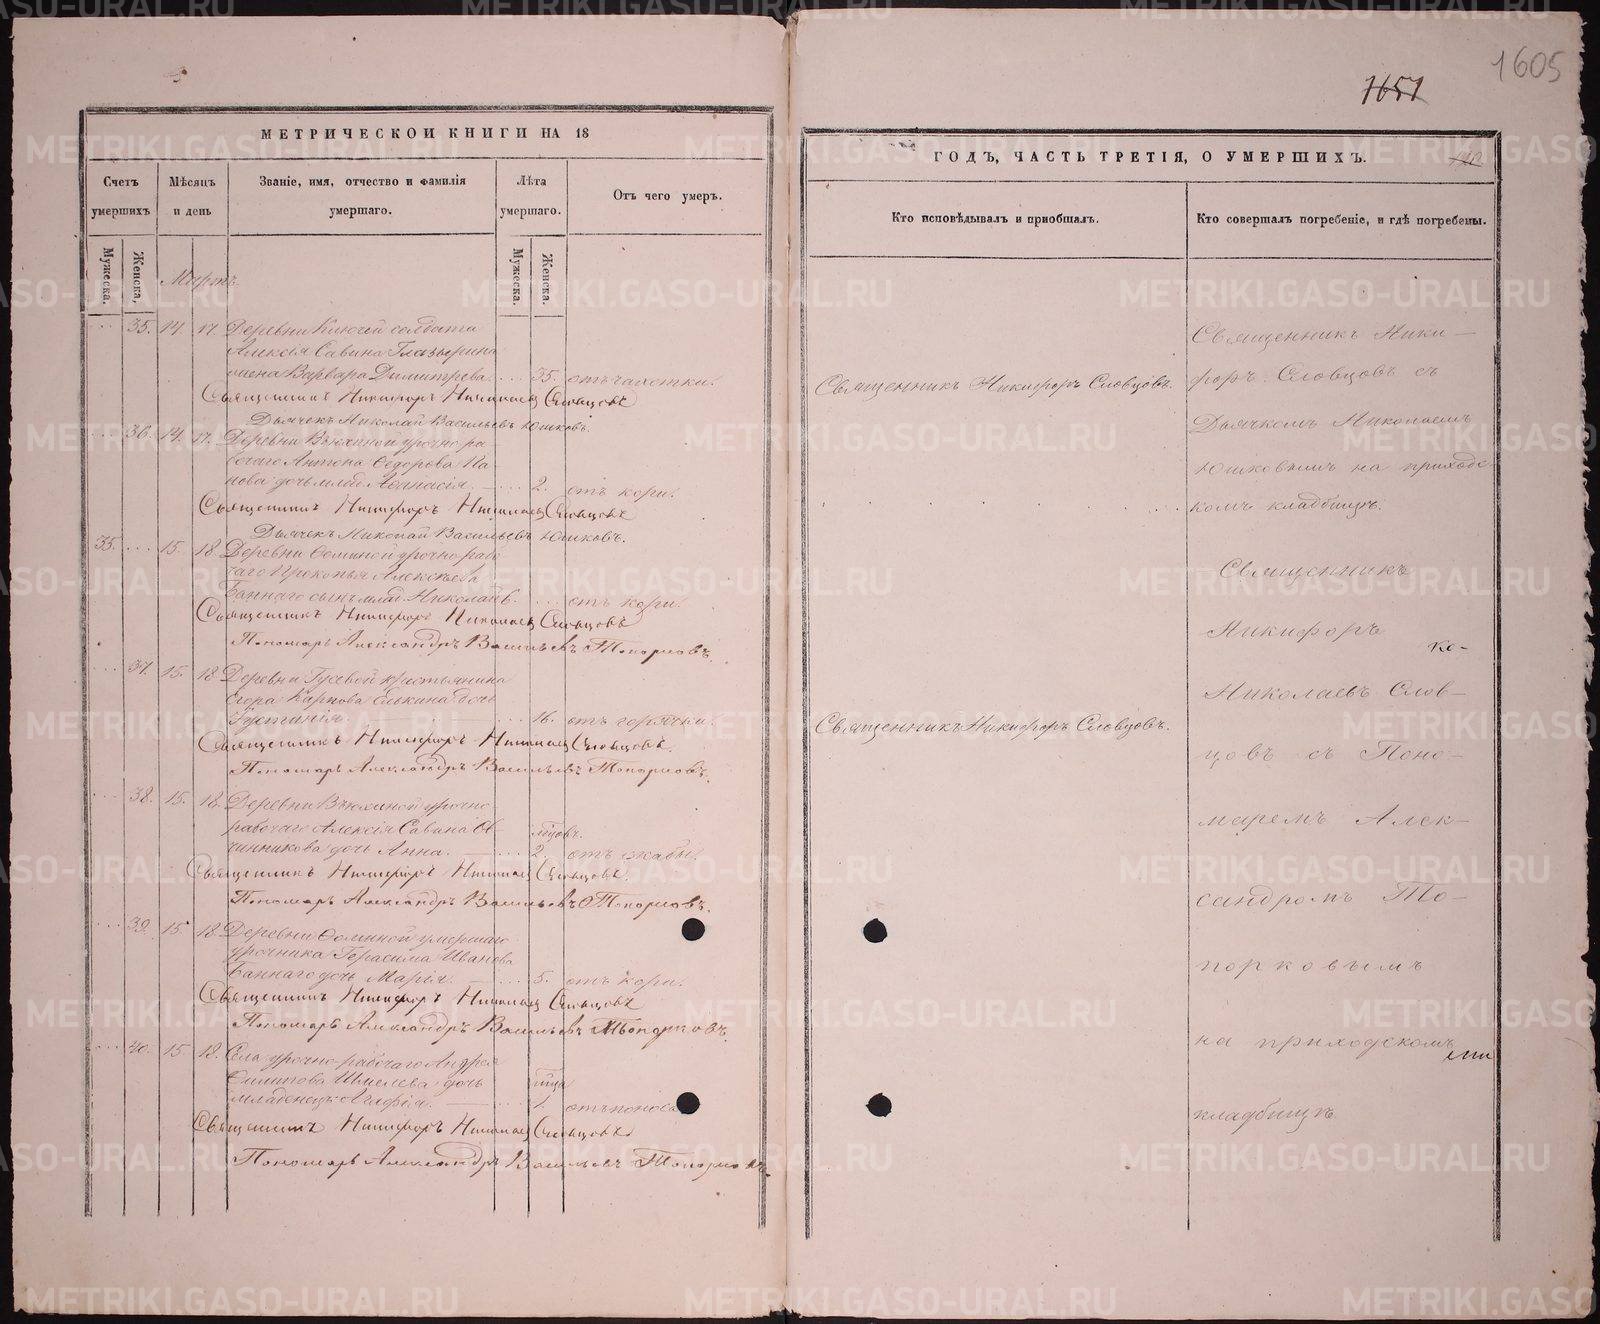 1605
1651
МЕТРИЧЕСКОЙ КНИГИ НА 18
Счетъ умершихъ
Мѣсяцъ и день
Званіе, имя, отчество и фамилія умершаго.
Лѣта умершаго.
Отъ чего умеръ.
Мужеска.
Женска.
Мужеска.
Женска.
Мартъ
35. 14. 17. Деревни Ключей солдата
Алексія Савина Глазырина
жена Варвара Димитрева. 35. отъ чахотки.
Священникъ Никифоръ Николаевъ Словцовъ
Дьячекъ Николай Васильевъ Юшковъ.
36. 14. 17. Деревни Вьюхиной урочно ра-
бочаго Антона Ѳедорова Па-
нова дочь млад. Аѳанасія. 2. отъ кори.
Священникъ Никифоръ Николаевъ Словцовъ
Дьячекъ Николай Васильевъ Юшковъ.
35. 15. 18. Деревни Ѳоминой урочно рабо-
чаго Прокопья Алексѣева
Баннаго сынъ млад. Николай 6. отъ кори.
Священникъ Никифоръ Николаевъ Словцовъ
Пономарь Александръ Васильевъ Топорковъ.
37. 15. 18. Деревни Гусевой крестьянина
Егора Карпова Елкина дочь
Іустинія. 16. отъ горячки.
Священникъ Никифоръ Николаевъ Словцовъ.
Пономарь Александръ Васильевъ Топорковъ.
38. 15. 18. Деревни Вьюхиной урочно
рабочаго Алексія Савина Ов-
чинникова дочь Анна. 2. отъ жабы.
Священникъ Никифоръ Николаевъ Словцовъ.
Пономарь Александръ Васильевъ Топорковъ.
39. 15 18. Деревни Ѳоминой умершаго
урочника Герасима Иванова
Баннаго дочь Марія. 5. отъ кори.
Священникъ Никифоръ Николаевъ Словцовъ
Пономарь Александръ Васильевъ Топорковъ.
40. 15 18. Села урочно-рабочаго Андрея
Филипова Шмелева дочь
младенецъ Агафія. 1. отъ поноса
Священникъ Никифоръ Николаевъ Словцовъ
Пономарь Александръ Васильевъ Топорковъ.
ГОДЪ, ЧАСТЬ ТРЕТІЯ, О УМЕРШИХЪ.
Кто исповѣдывалъ и пріобщалъ.
Кто совершалъ погребеніе, и гдѣ погребены.
Священникъ Никифоръ Словцовъ.
Священникъ Никифоръ Словцовъ.
Священникъ Ники-
форъ Словцовъ съ
Дьячкомъ Николаемъ
Юшковымъ на приходс-
комъ кладбищѣ.
Священникъ
Никифоръ
ко-
Николаевъ Слов-
цовъ съ Поно-
маремъ Алек-
сандромъ То-
порковымъ
на приходскомъ
кладбищѣ
METRIKI.GASO-URAL.RU